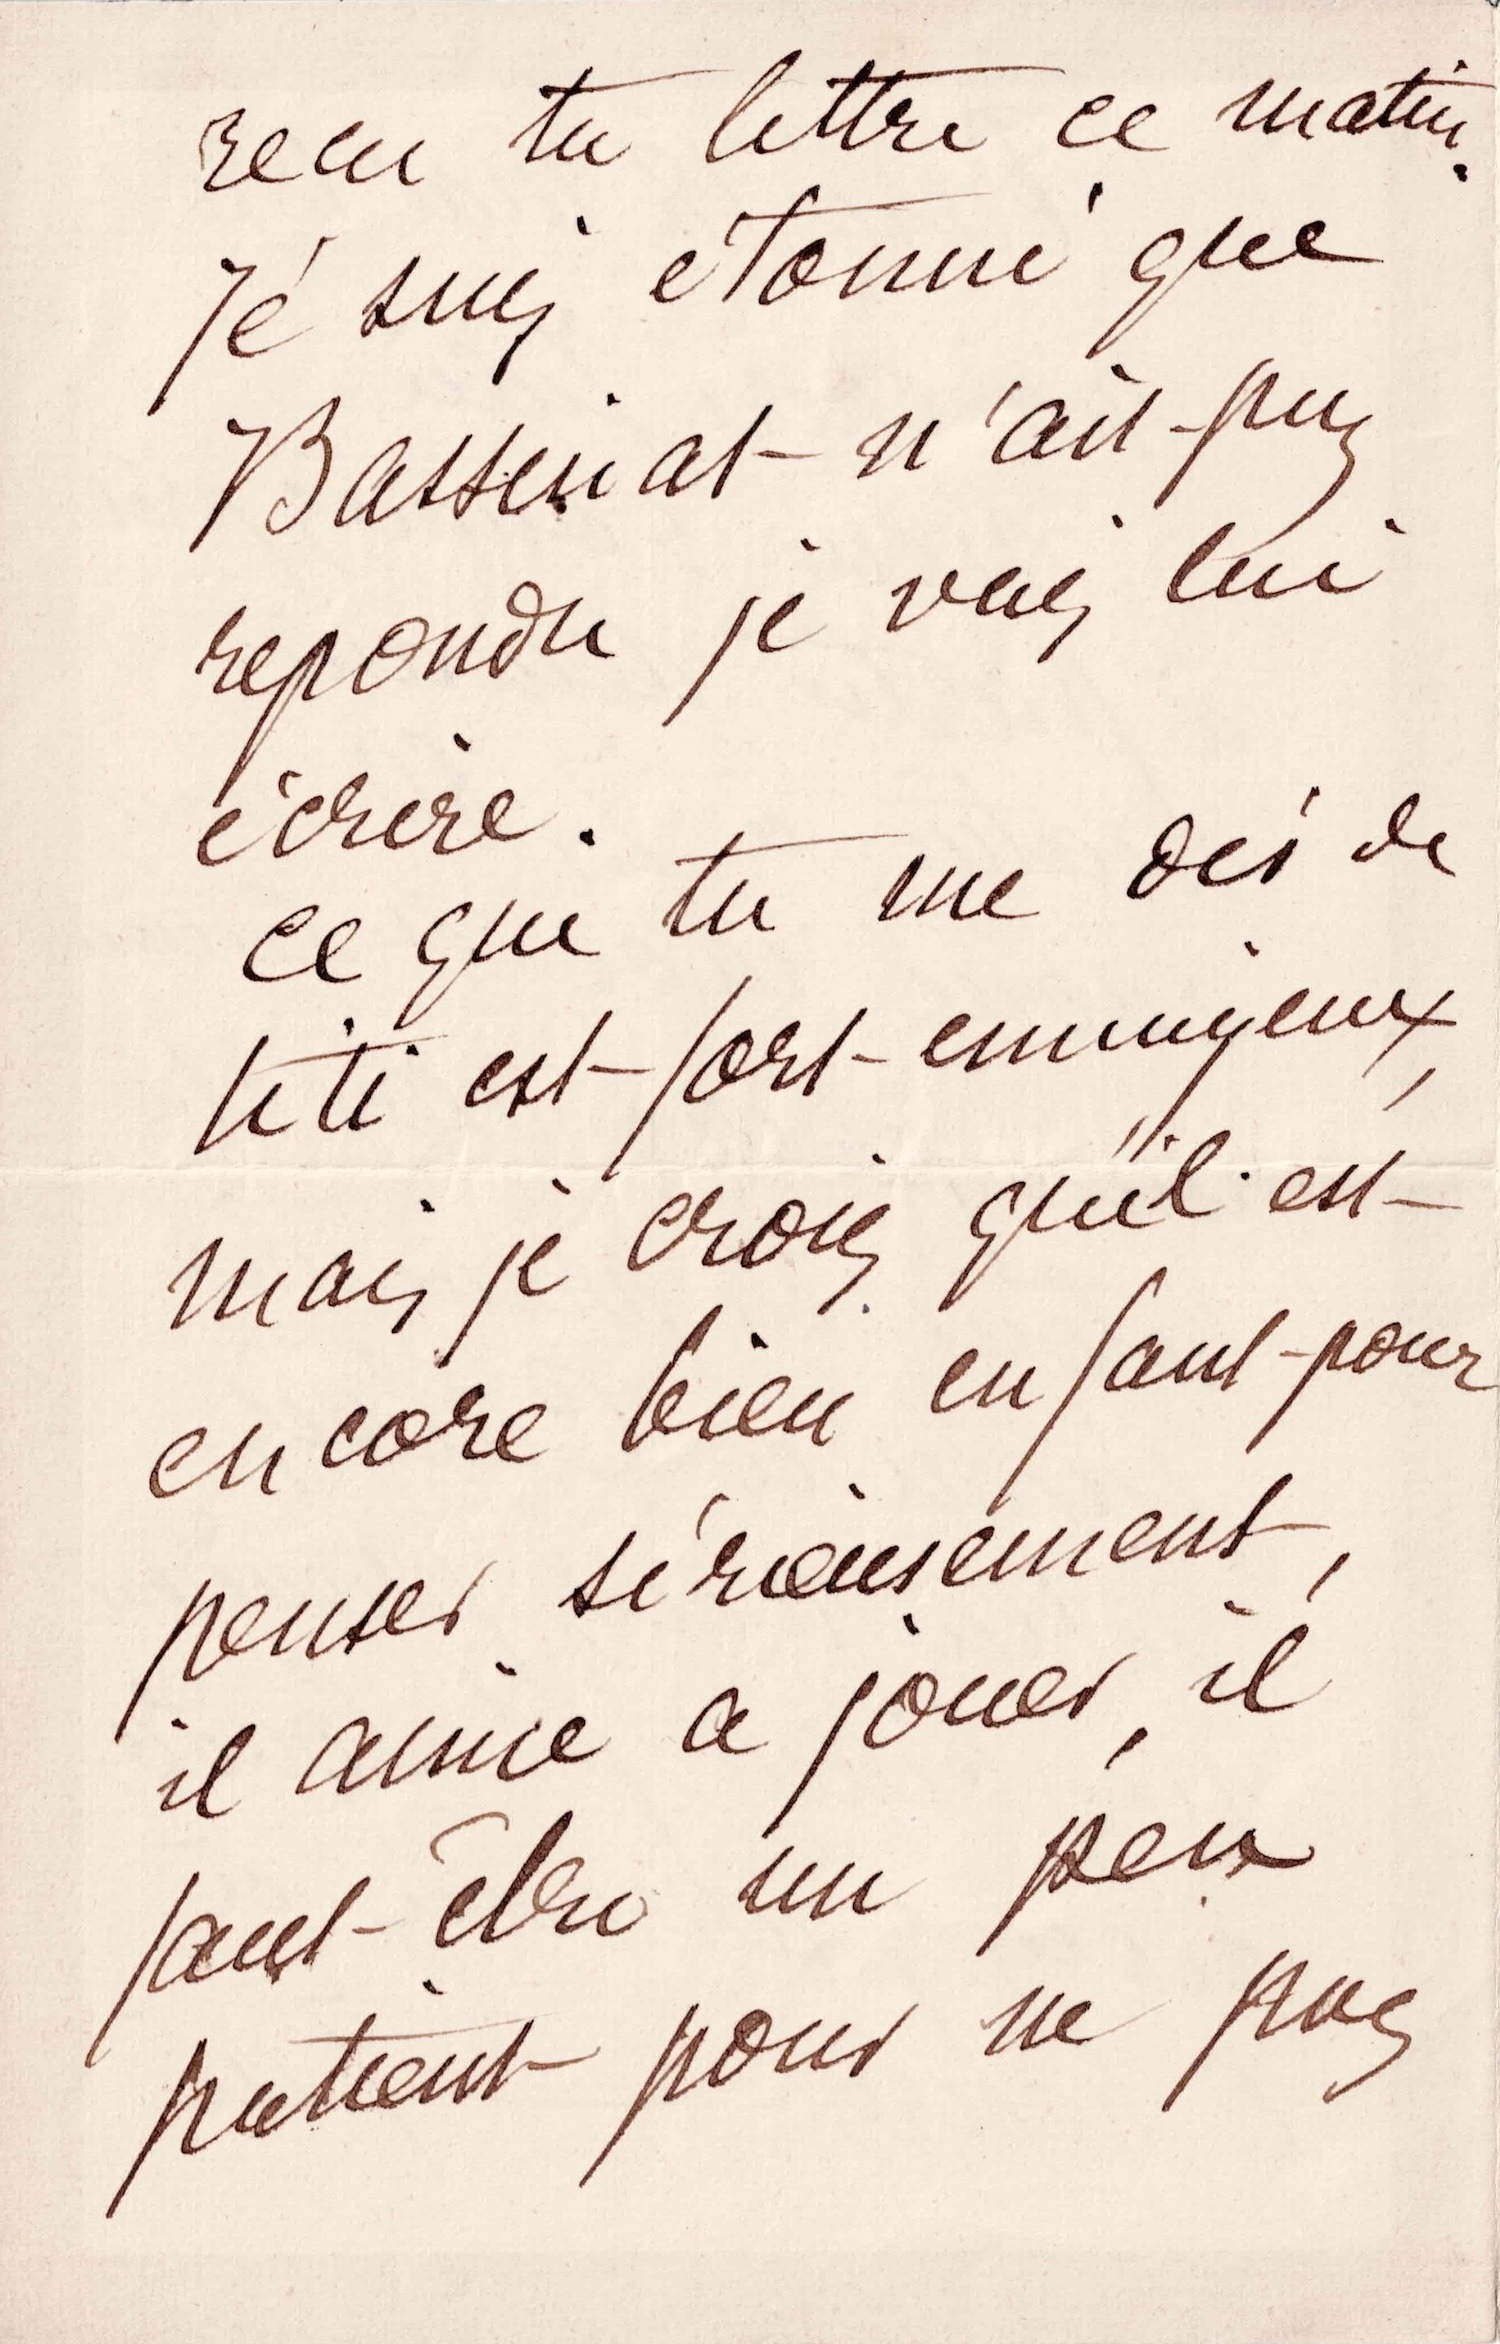 recu ta lettre ce matin.
Je suis etonné que
Basseriat n'ait pas
repondu je vais lui
écrire.
ce que tu me dis de
titi est fort ennuyeux,
mais je crois qu'il est
encore bien enfant pour
penser sérieusement,
il aime a jouer, il
faut être un peu
patient pour ne pas